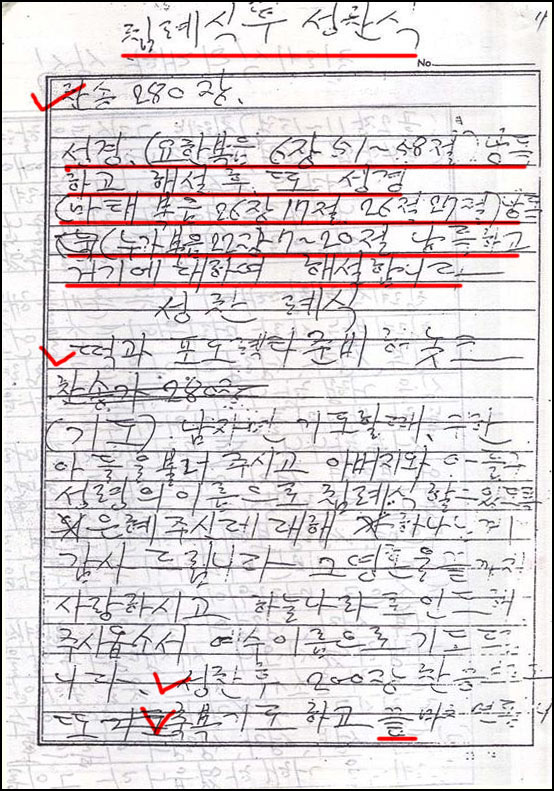 침례식후 성찬식
No.
찬송 280장.
성경. (요한복음 6장 51~58절) 낭독
하고 해설 후. 또 성경
(마태복음 26장 17절. 26절 27절) 낭독
(누가복음 22장 7~20절 낭독하고
거기에 대하여 해설합니다
성찬 례식
떡과 포도 준비 해놓고
찬송가 280장
(기도) 기도할때.
아들을 불러 주시고 아버지와 아들과
성령의 이름으로 침례식 할수있도록
은혜주신데 대해 하나님께
감사 드립니다 영혼을 끝까지
사랑하시고 하늘나라로 인도해
주시옵소서 예수이름으로 기도드립
니다. 성찬후 200장 찬송
또 축복기도 하고